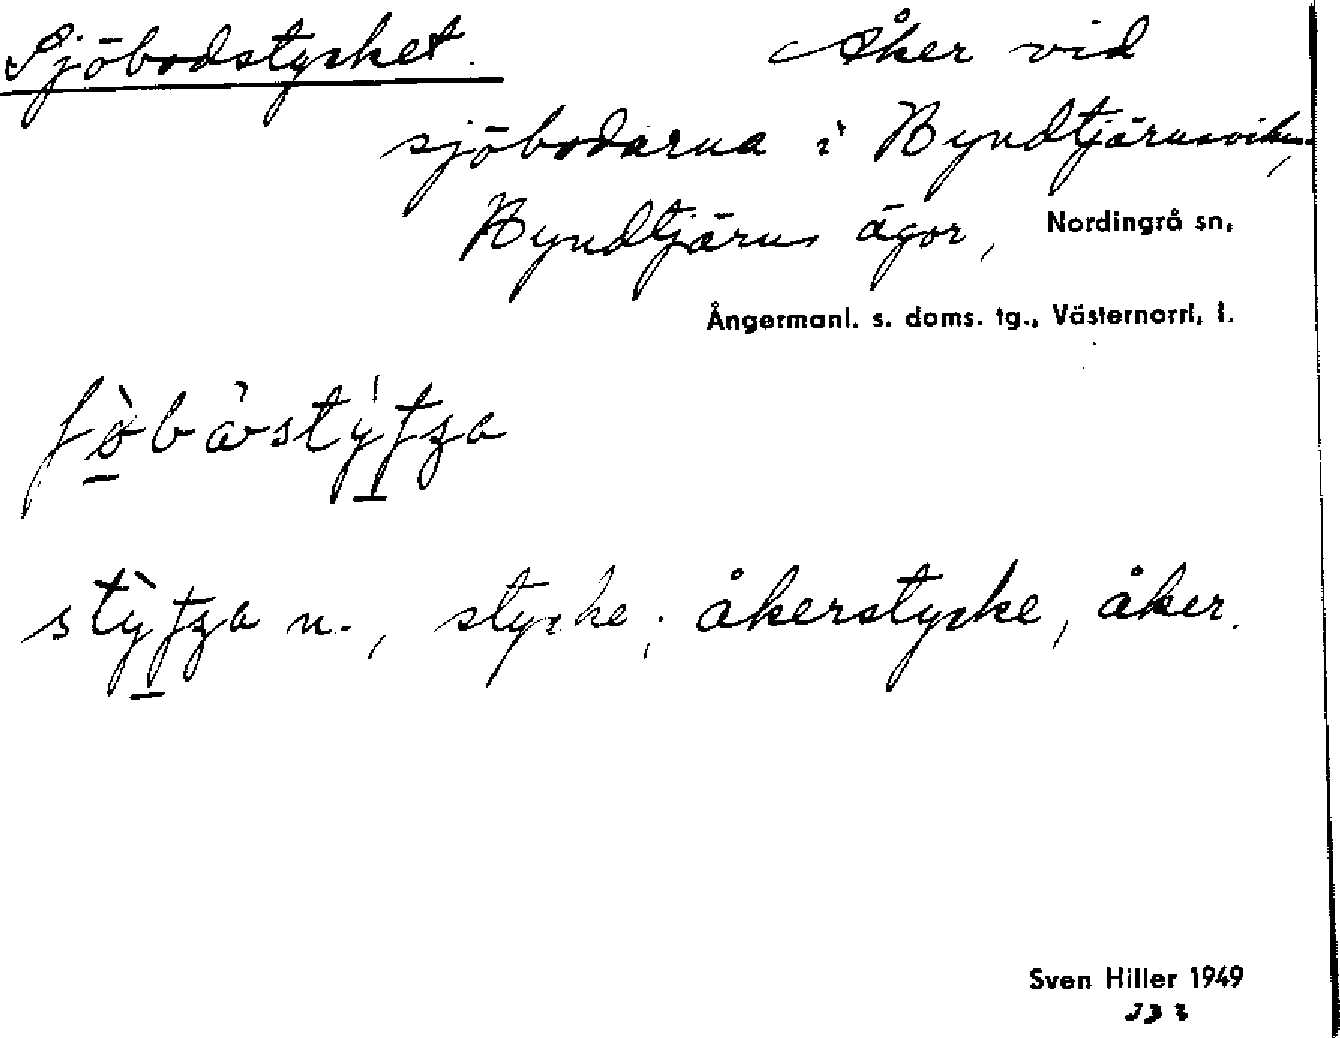 Sjöbodstycket. Åker vid
sjöbodarna i Byndtjärnsviken,
Byndtjärns ägor, Nordingrå sn,
Ångermanl. s. doms. tg., Västernorrl. l.
n., stycke; åkerstycke, åker.
Sven Hiller 1949